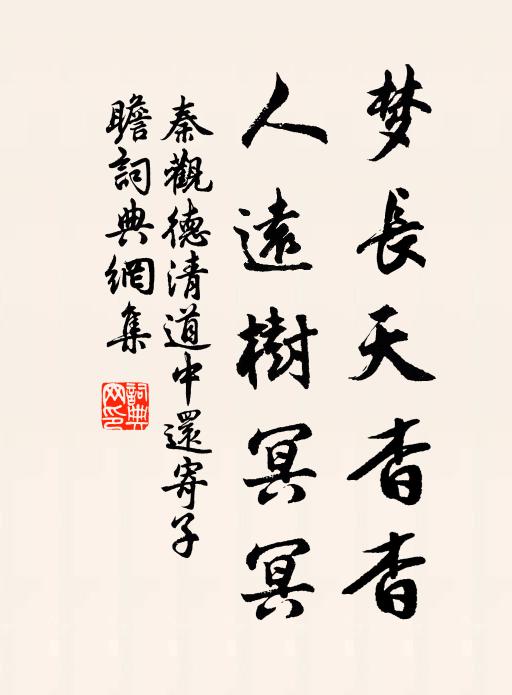 梦長天杳杳
人遠樹冥冥
秦觀德清道中還寄子
瞻詞典網集
詞典
网印